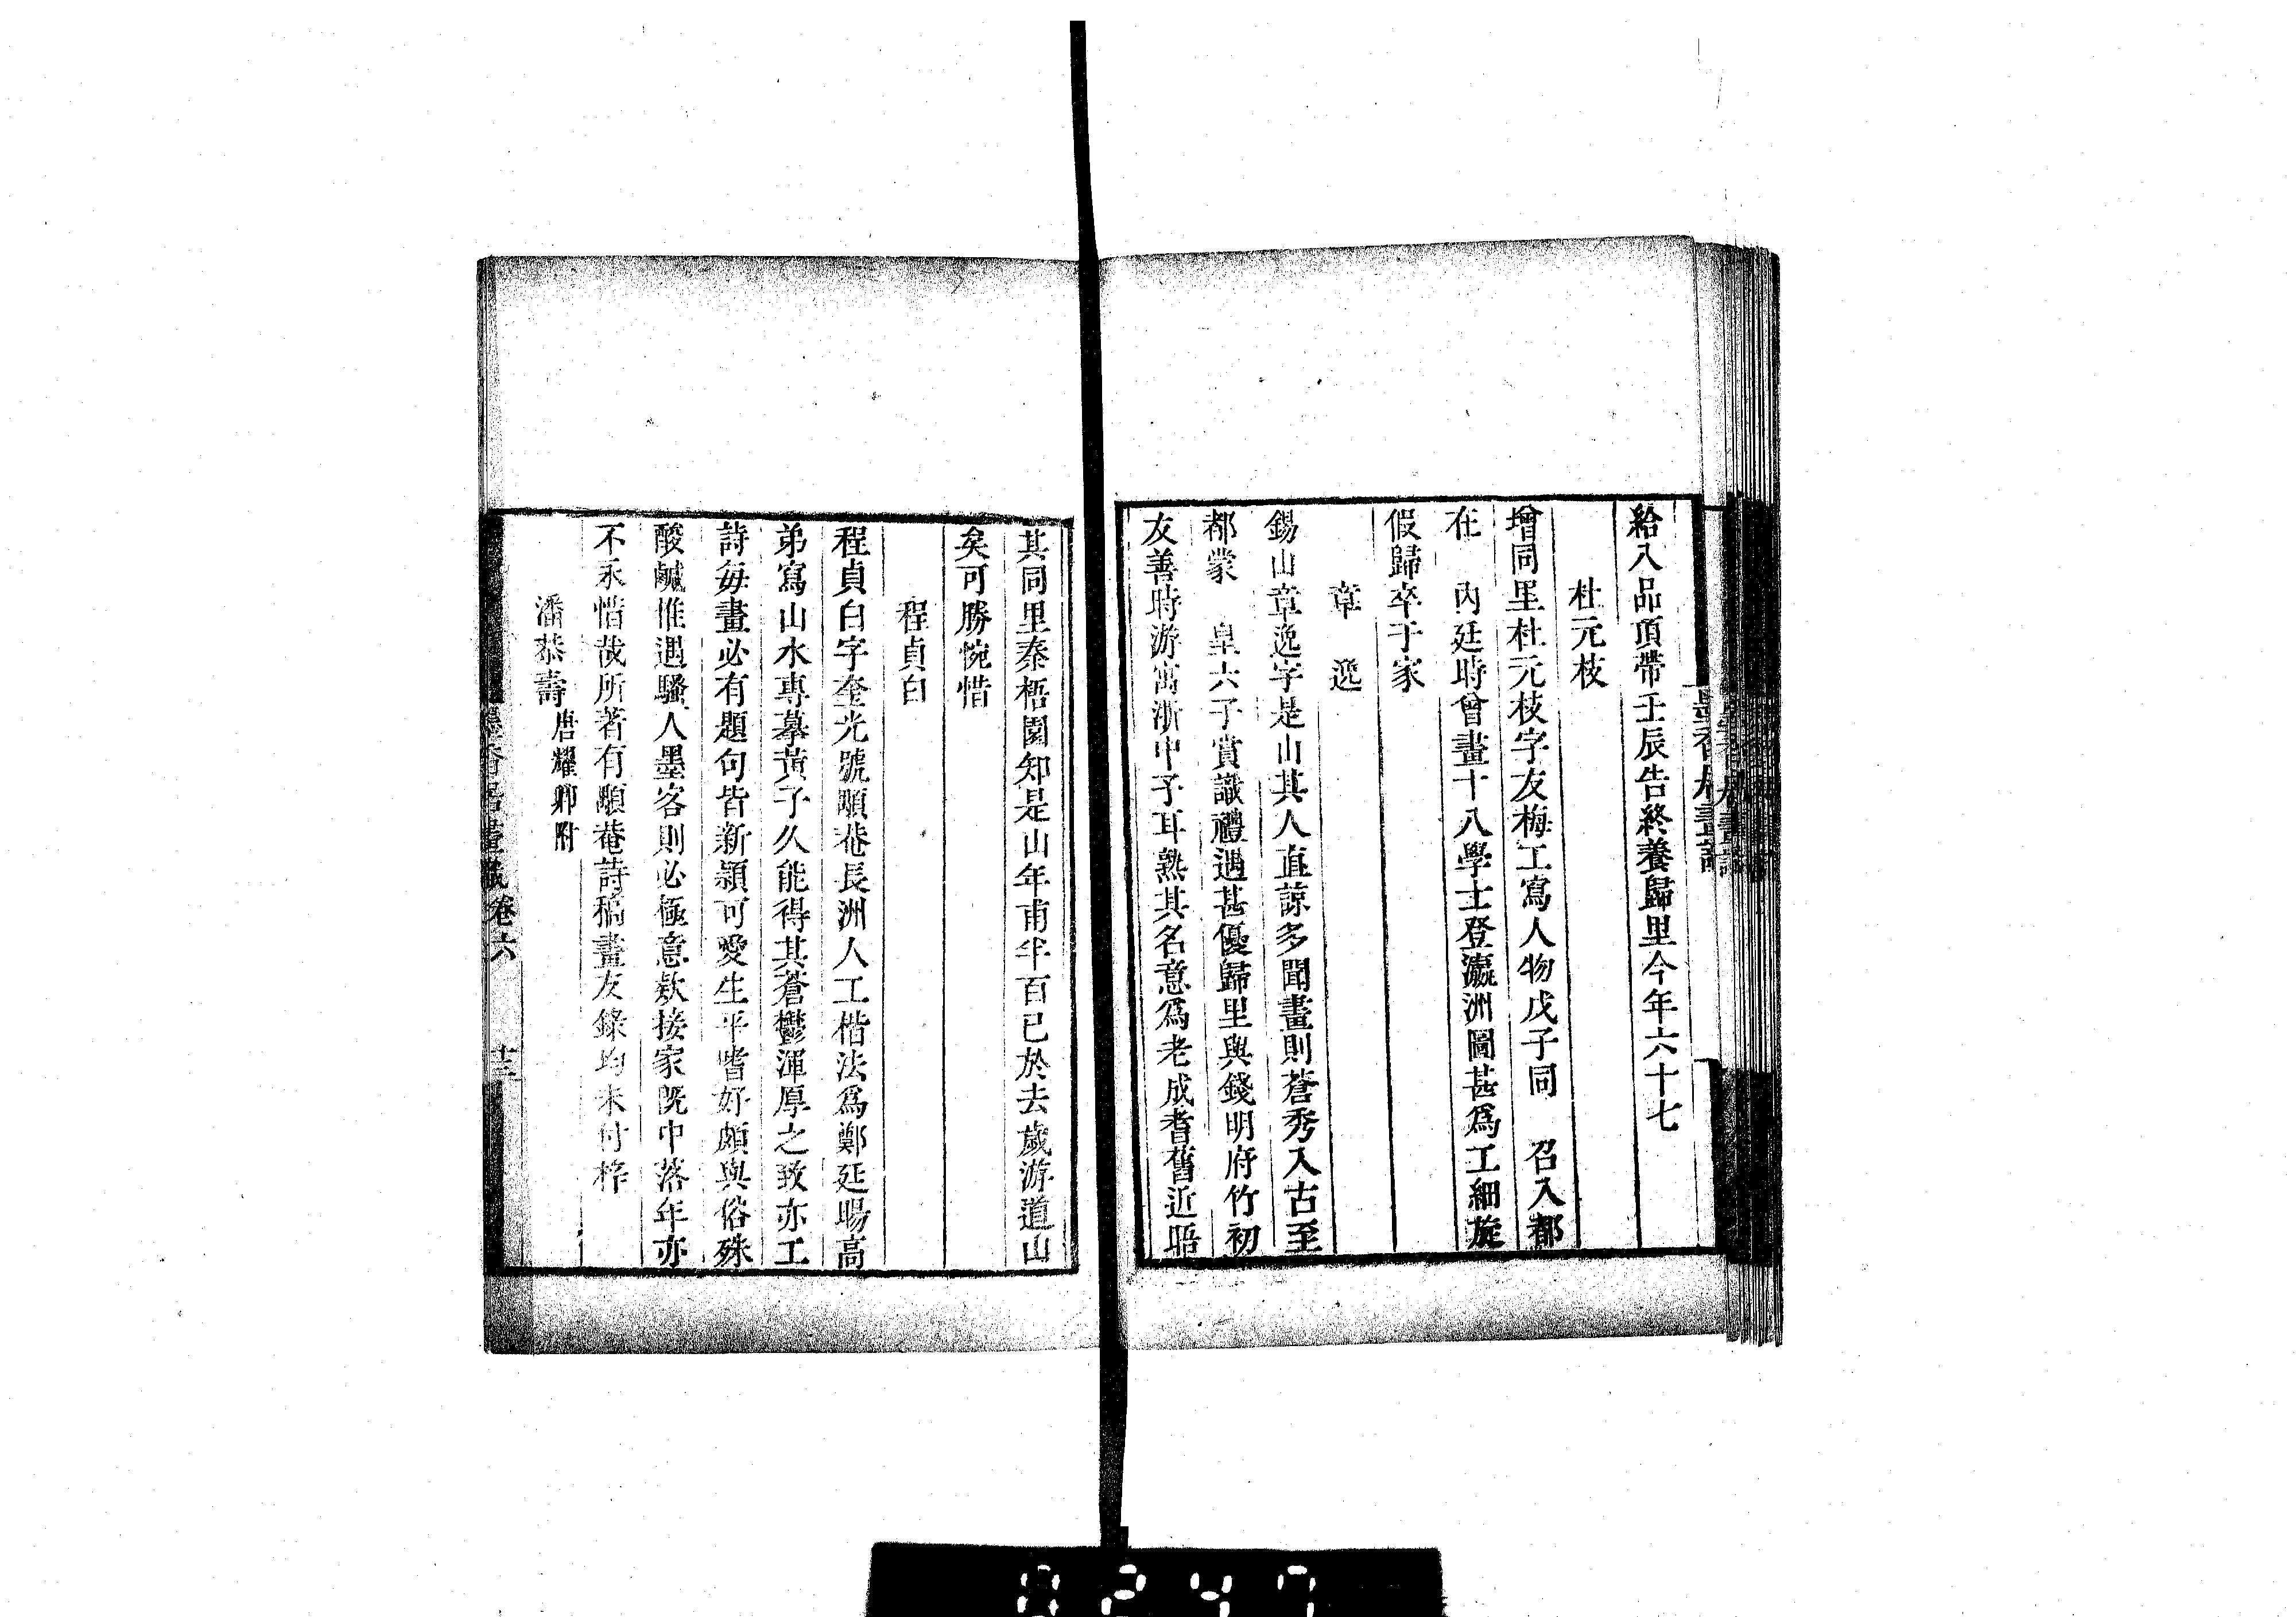 給八品頂帶壬辰告終養歸里今年六十七
杜元枝
增同里杜元枝字友梅工寫人物戊子同　召入都
在　內廷時曾畫十八學士登瀛洲圖甚爲工細旋
假歸卒于家
章　逸
錫山章逸字是山其人直諒多聞畫則蒼秀入古至
都蒙　皇六子賞識禮遇甚優歸里與錢明府竹初
友善時游寓浙中予耳熟其名意爲老成耆舊近晤
其同里秦梧園知是山年甫半百已於去歲游道山
矣可勝惋惜
程貞白
程貞白字奎光號顒菴長洲人工楷法爲鄭延暘高
弟寫山水專摹黃子久能得其蒼鬱渾厚之致亦工
詩每畫必有題句皆新穎可愛生平嗜好頗與俗殊
酸鹹惟遇騷人墨客則必極意款接家旣中落年亦
不永惜哉所著有顒菴詩稿畫友錄均未付梓
潘恭壽 唐耀卿附
墨香居畫識 卷六 十三
0247